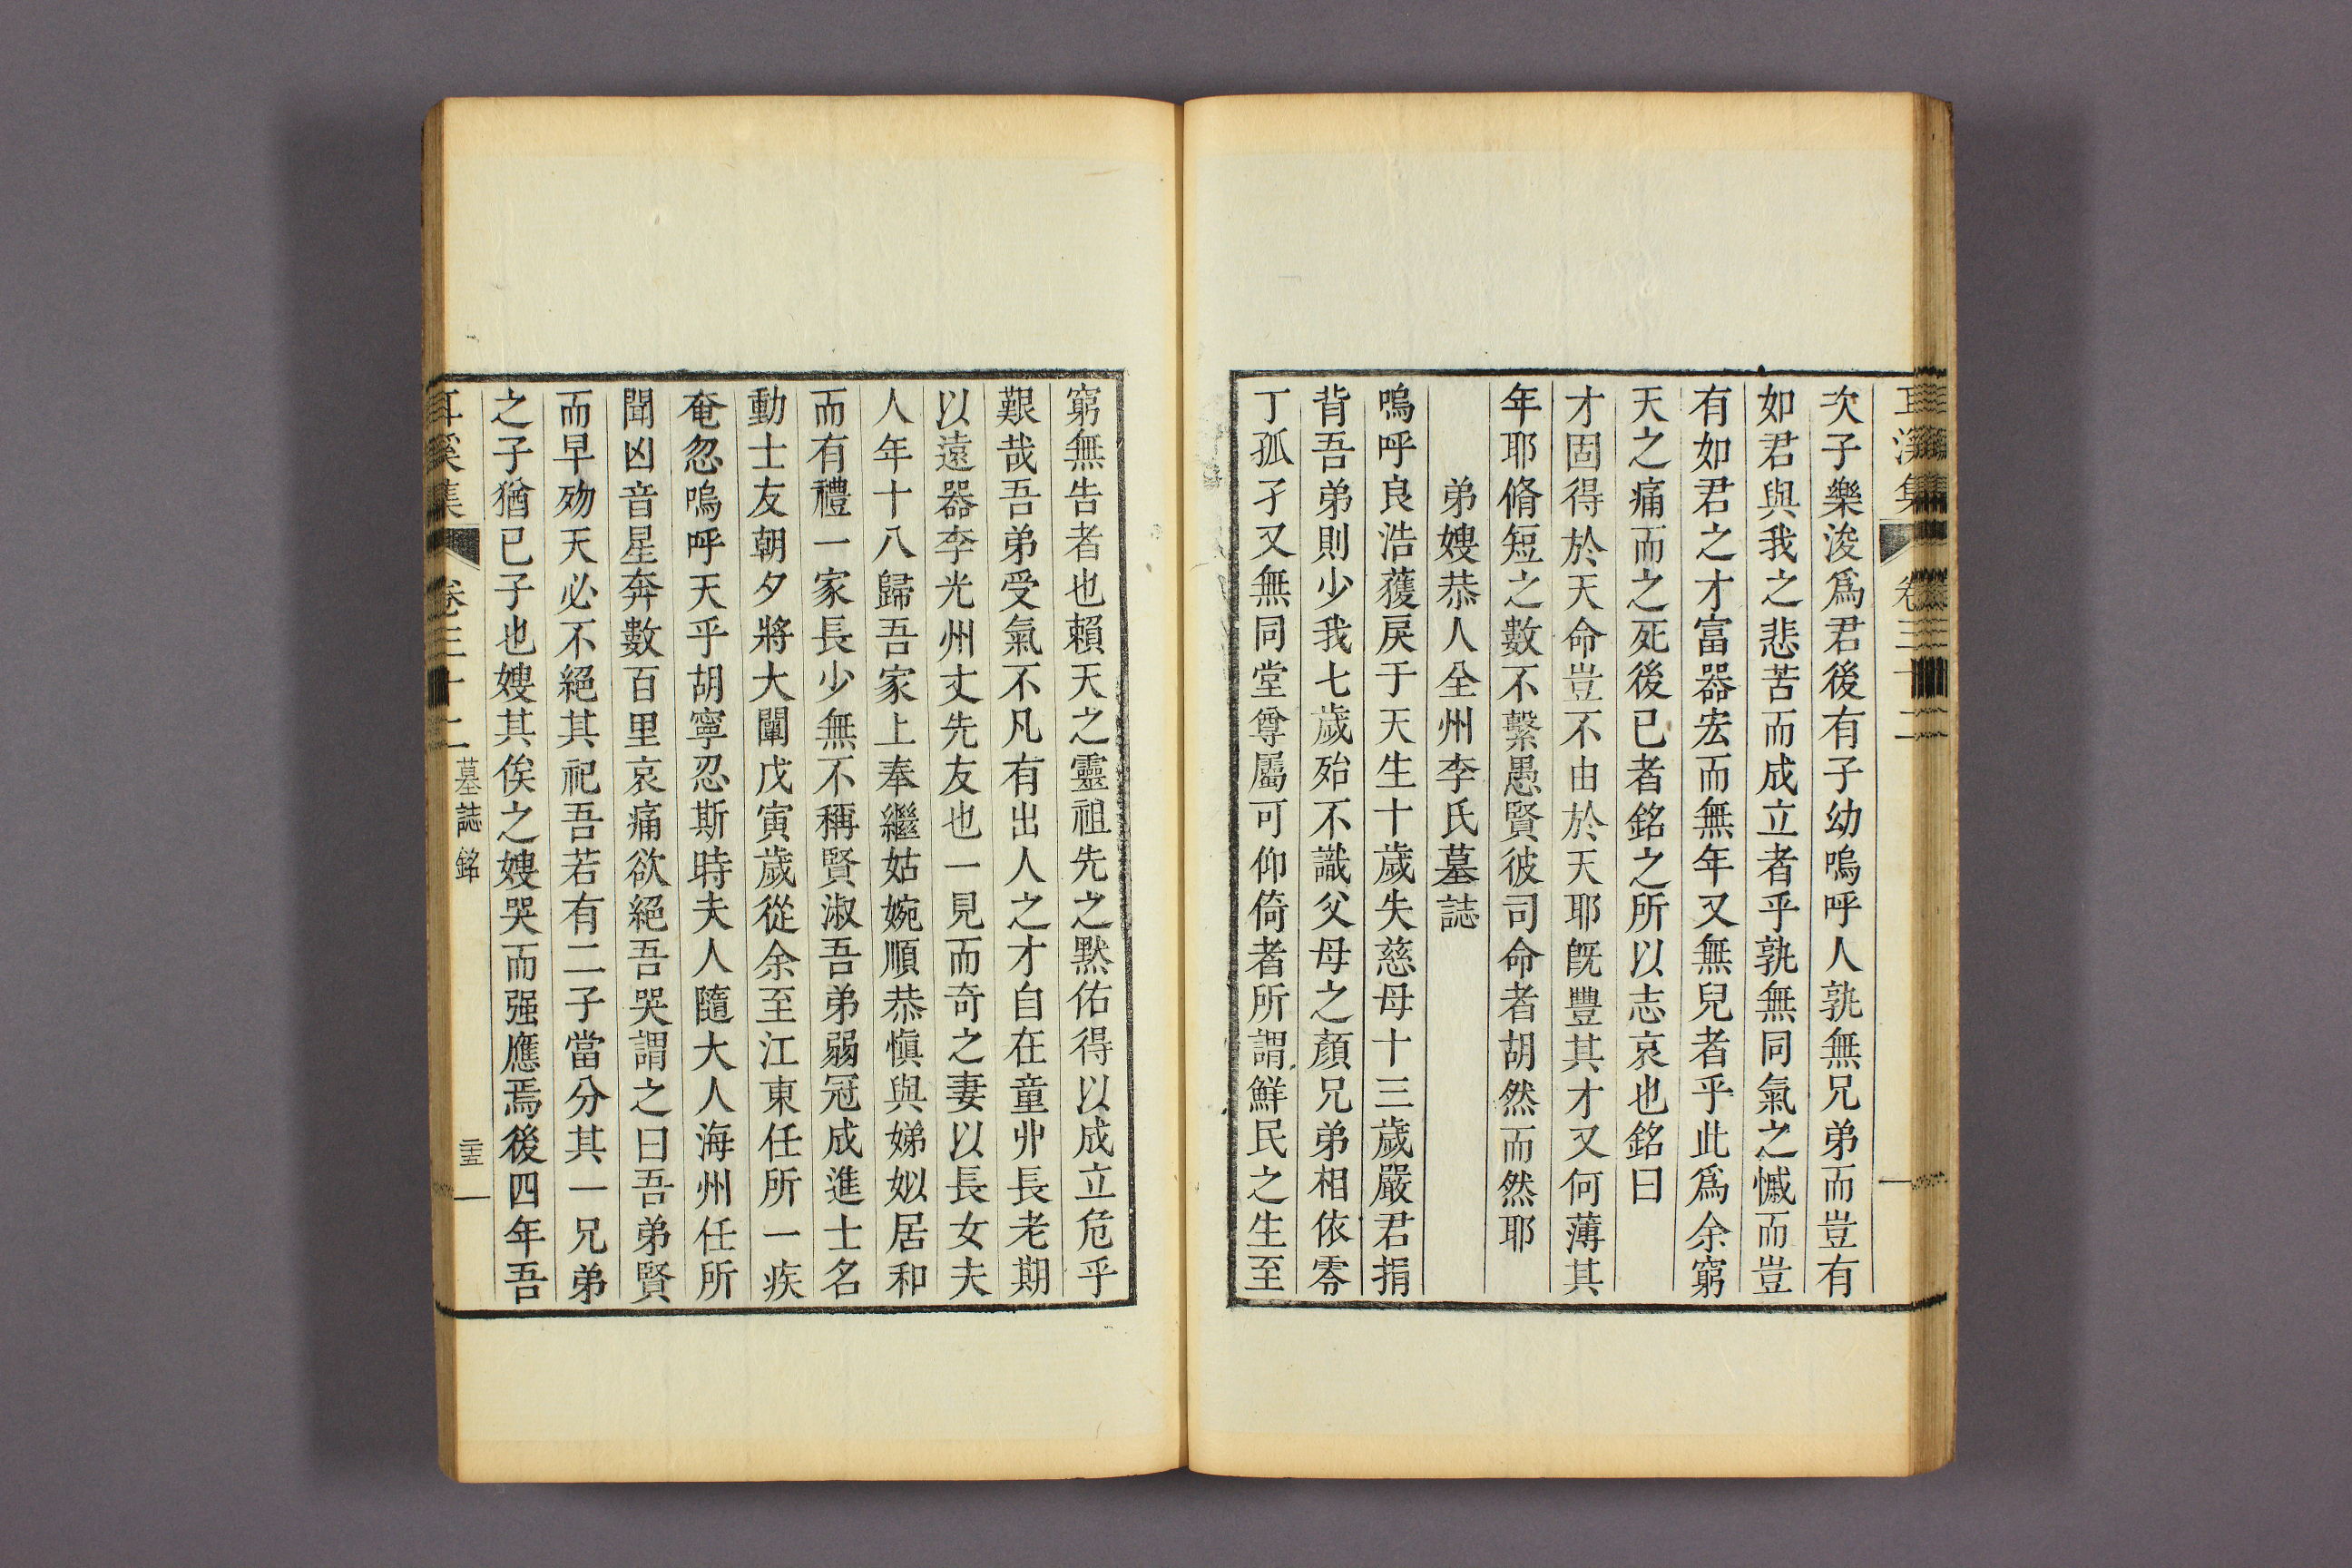 耳溪集 卷三十二
次子樂浚爲君後有子幼嗚呼人孰無兄弟而豈有
如君與我之悲苦而成立者乎孰無同氣之慽而豈
有如君之才富器宏而無年又無兒者乎此爲余窮
天之痛而之死後已者銘之所以志哀也銘曰
才固得於天命豈不由於天耶旣豐其才又何薄其
年耶脩短之數不繫愚賢彼司命者胡然而然耶
弟嫂恭人全州李氏墓誌
嗚呼良浩獲戾于天生十歲失慈母十三歲嚴君捐
背吾弟則少我七歲殆不識父母之顏兄弟相依零
丁孤孑又無同堂尊屬可仰倚者所謂鮮民之生至
窮無告者也賴天之靈祖先之默佑得以成立危乎
艱哉吾弟受氣不凡有出人之才自在童丱長老期
以遠器李光州丈先友也一見而奇之妻以長女夫
人年十八歸吾家上奉繼姑婉順恭愼與娣姒居和
而有禮一家長少無不稱賢淑吾弟弱冠成進士名
動士友朝夕將大闡戊寅歲從余至江東任所一疾
奄忽嗚呼天乎胡寧忍斯時夫人隨大人海州任所
聞凶音星奔數百里哀痛欲絕吾哭謂之曰吾弟賢
而早歾天必不絕其祀吾若有二子當分其一兄弟
之子猶已子也嫂其俟之嫂哭而强應焉後四年吾
耳溪集 卷三十二 墓誌銘 二十五